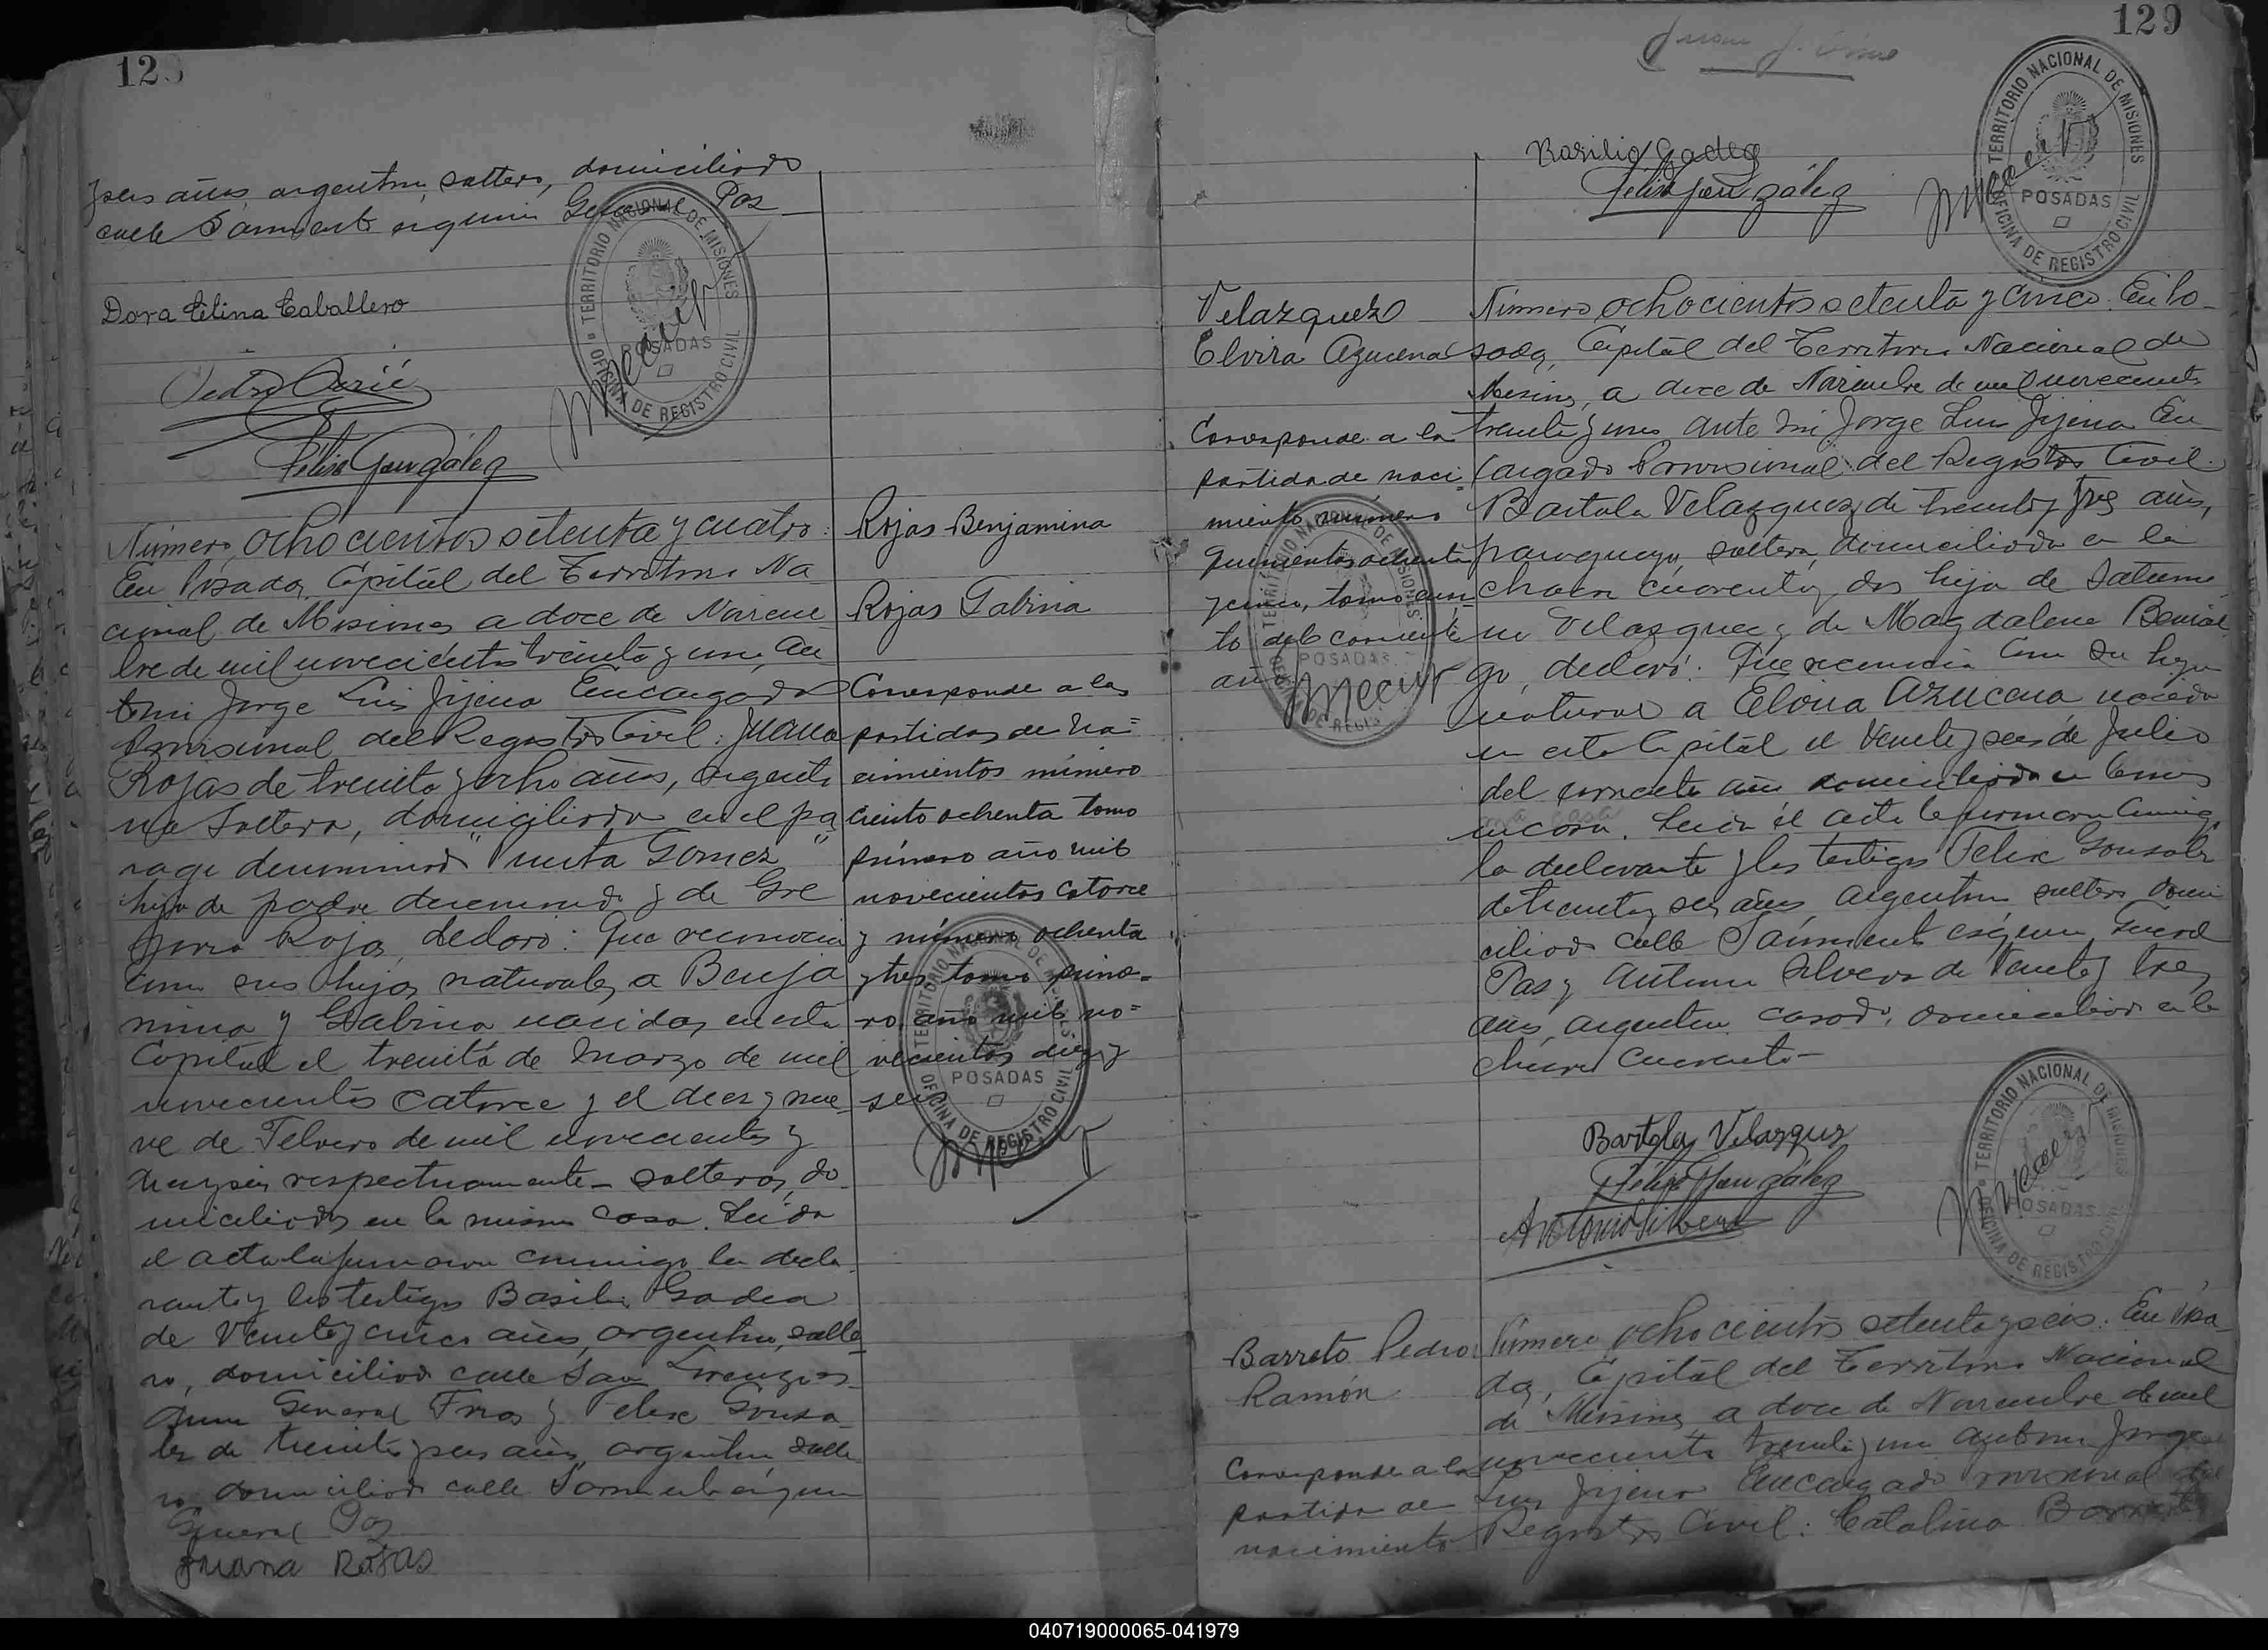 128
y seis años, argentino, soltero, domiciliado
calle Sarmiento esquina General Paz
TERRITORIO NACIONAL DE MISIONES
POSADAS
OFICINA DE REGISTRO CIVIL
Dora Celina Caballero
Felix Gonzalez
Número ochocientos setenta y cuatro:
En Posadas, Capital del Territorio Na
cional de Misiones a doce de Noviem
bre de mil novecientos treinta y uno, an
te mi Jorge Luis Jijena Encargado
Provisional del Registro Civil: Juana
Rojas de treinta y ocho años, argenti
na soltera, domiciliada en el pa
rage denominado "Punta Gomez"
hija de padre desconocido y de Gre
goria Rojas, declaró: Que reconocia
como sus hijos naturales a Benja
mina y Gabina nacidas en esta
Capital el treinta de Marzo de mil
novecientos catorce y el diez y nue
ve de Febrero de mil novecientos y
diez y seis respectivamente - solteras, do
miciliadas en la misma casa. Leída
el acta la firmaron conmigo la decla
rante y los testigos Basilio Gadea
de veinte y cinco años, argentino, solte
ro, domiciliado calle San Lorenzo es
quina General Frias y Felix Gonza
lez de treinta y seis años, argentino, solte
ro, domiciliado calle Sarmiento esquina
General Paz
Juana Rojas
Rojas Benjamina
Rojas Gabina
Corresponde a las
partidas de na=
cimientos número
ciento ochenta tomo
primero año mil
novecientos catorce
y número ochenta
y tres tomo prime=
ro, año mil no=
vecientos diez y
seis
TERRITORIO NACIONAL DE MISIONES
POSADAS
OFICINA DE REGISTRO CIVIL
129
Basilio Gadea
Felix Gonzalez
TERRITORIO NACIONAL DE MISIONES
POSADAS
OFICINA DE REGISTRO CIVIL
Velazquez
Elvira Azucena
Corresponde a la
partida de naci
miento número
quinientos ochenta
y cinco, tomo cuar
to del corriente
año
TERRITORIO NACIONAL DE MISIONES
POSADAS
OFICINA DE REGIS
Número ochocientos setenta y cinco. En Po
sadas, Capital del Territorio Nacional de
Misiones, a doce de Noviembre de mil novecientos
treinta y uno ante mi Jorge Luis Jijena En
cargado Provisional del Registro Civil.
Bartola Velazquez de treinta y tres años,
paraguaya, soltera, domiciliada en la
chacra cuarenta y dos hija de Saturni
no Velazquez y de Magdalena
declaró: Que reconocia como su hija
natural a Elvira Azucena nacida
en esta Capital el veinte y seis de Julio
del corriente año domiciliada en la mis
ma casa. Leida el acta la firmaron conmigo
la declarante y los testigos Felix Gonzalez
de treinta y seis años, argentino, soltero domi
ciliado calle Sarmiento esquina General
Paz y Antonio Silvera de veinte y tres
años, argentino, casado, domiciliado en la
chacra cuarenta -
Bartola Velazquez
Felix Gonzalez
Antonio Silvera
TERRITORIO NACIONAL DE MISIONES
POSADAS
OFICINA DE REGISTRO CIVIL
Barreto Pedro
Ramón
Corresponde a la
partida de
nacimiento
Número ochocientos setenta y seis: En Posa
das, Capital del Territorio Nacional
de Misiones a doce de Noviembre de mil
novecientos treinta y uno ante mi Jorge
Luis Jijena Encargado Provisional del
Registro Civil: Catalina Barreto
040719000065-041979